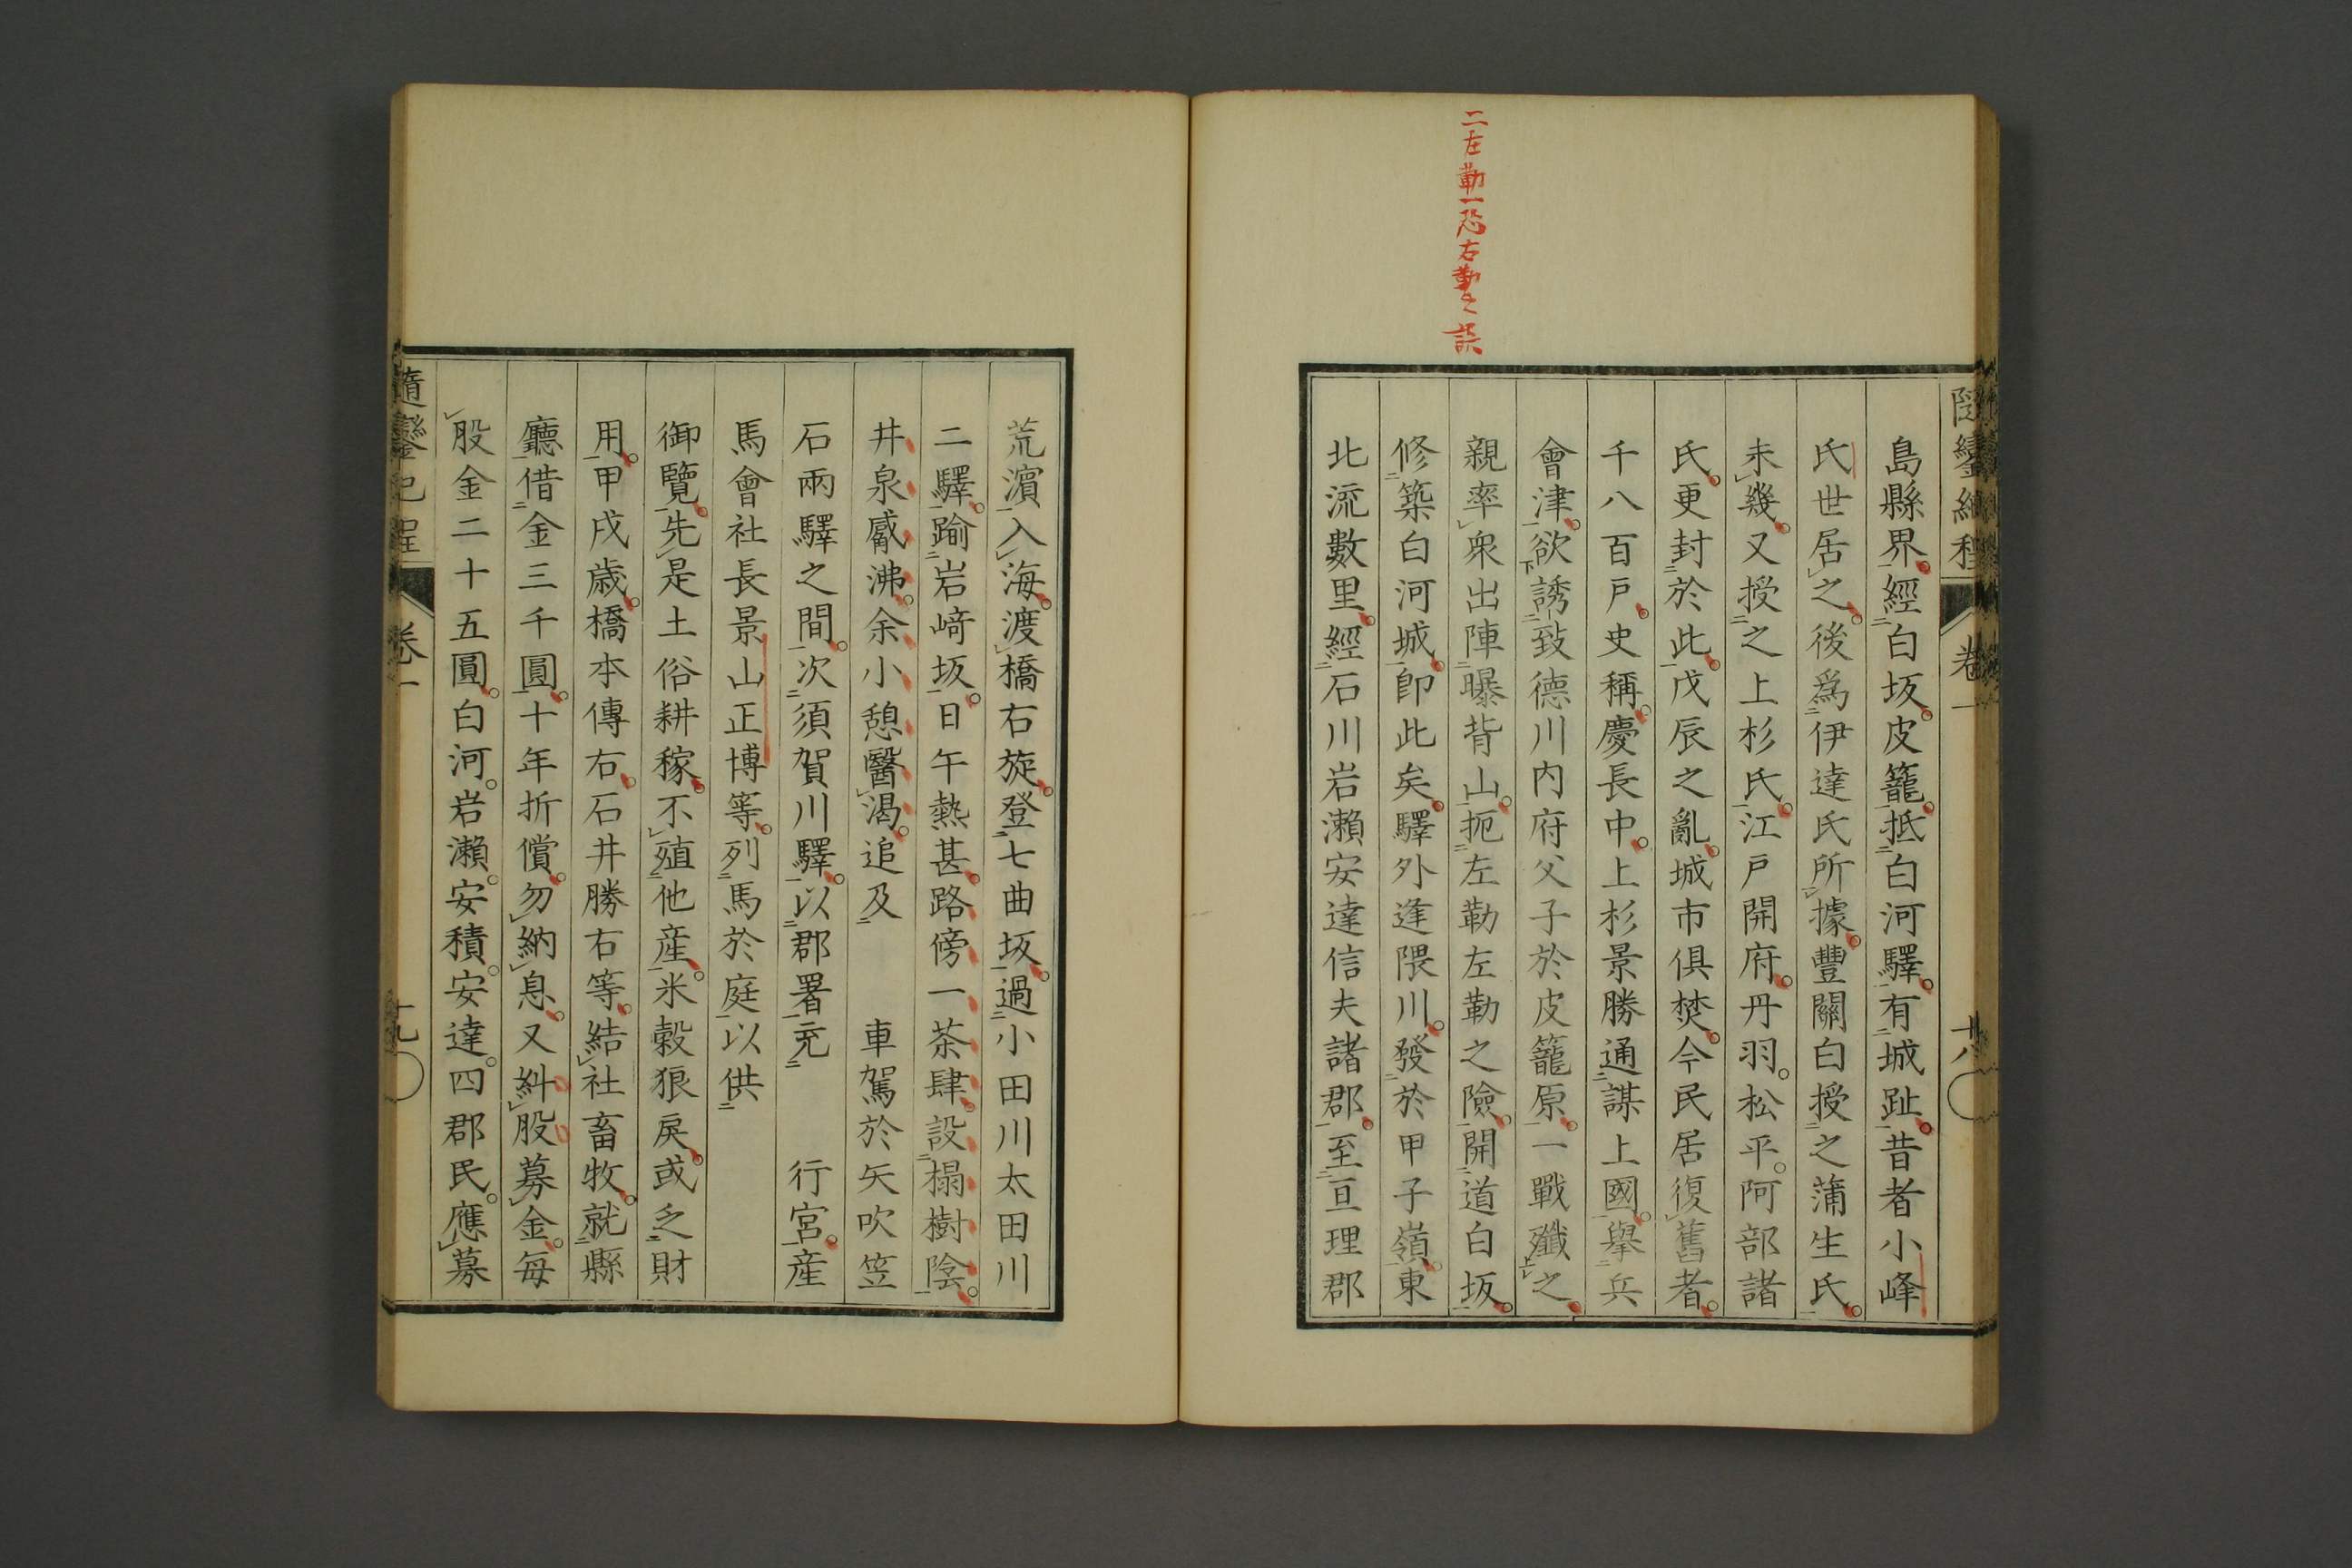 二左勒一恐右勒之誤
隨鑾紀程
卷一
十八
島縣界。經白坂皮籠。抵白河驛。有城趾。昔者小峰
氏世居之。後爲伊達氏所據。豐關白授之蒲生氏。
未幾。又授之上杉氏。江戸開府。丹羽。松平。阿部諸
氏。更封於此。戊辰之亂。城市俱焚。今民居復舊者。
千八百戸。史稱。慶長中。上杉景勝通謀上國。擧兵
會津。欲誘致德川内府父子於皮籠原。一戰殲之。
親率衆出陣曝背山。扼左勒左勒之險。開道白坂。
修築白河城。卽此矣。驛外逢隈川。發於甲子嶺。東
北流數里。經石川岩瀨安達信夫諸郡。至亘理郡
荒濵入海。渡橋右旋。登七曲坂。過小田川太田川
二驛。踰岩﨑坂。日午熱甚。路傍一茶肆。設榻樹陰。
井泉觱沸。余小憩醫渴。追及　車駕於矢吹笠
石兩驛之間。次須賀川驛。以郡署充　行宮。産
馬會社長景山正博等。列馬於庭以供
御覽。先是土俗耕稼。不殖他産。米穀狼戾。或乏財
用。甲戌歲。橋本傳右。石井勝右等。結社畜牧。就縣
廳借金三千圓。十年折償。勿納息。又糾股募金。每
股金二十五圓。白河。岩瀨。安積。安達。四郡民。應募
隨鑾紀程
卷一
十九